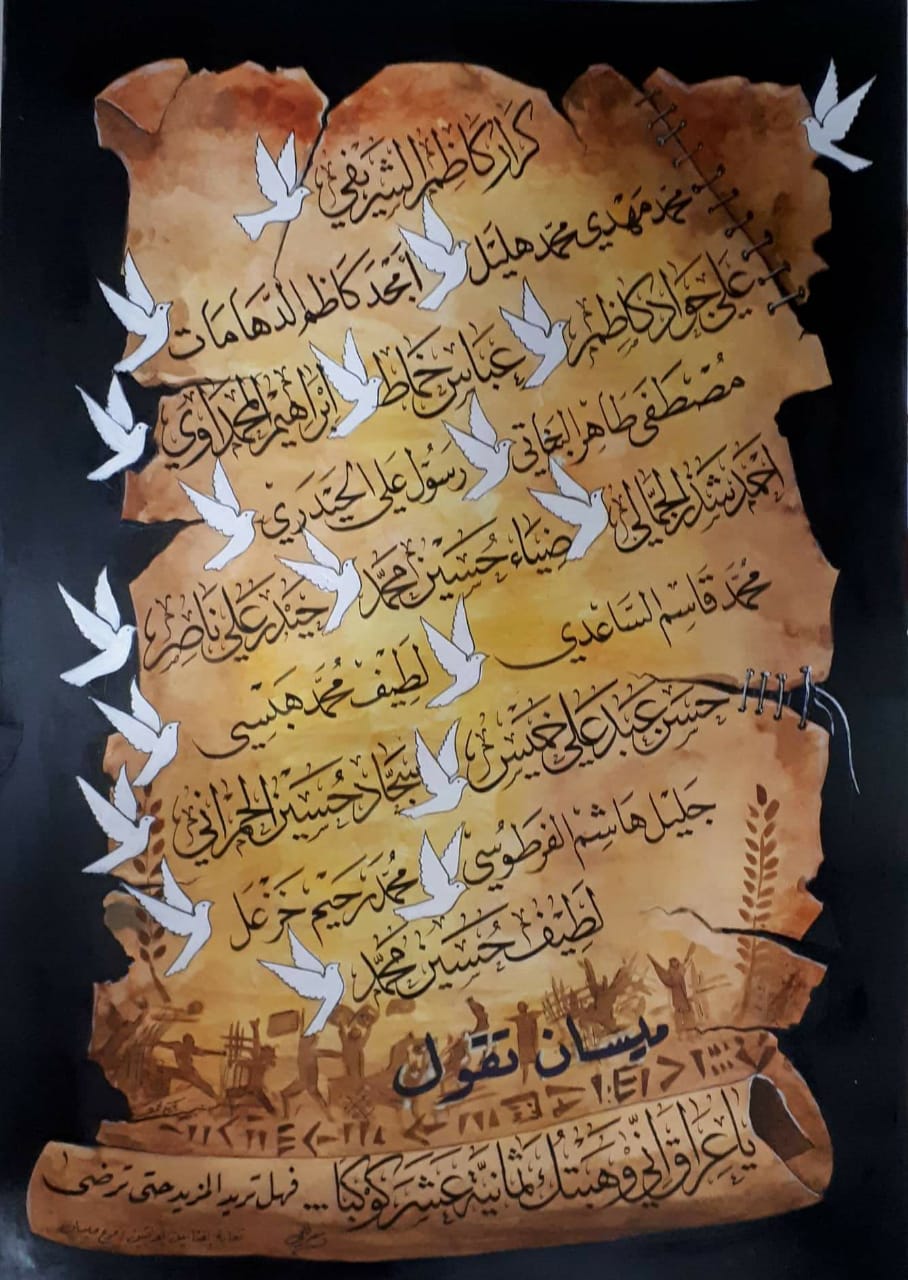 كرار كاظم الشريفي
محمد مهدي محمد هليل
أمجد كاظم الدهامات
علي جواد كاظم
عباس خماط
ابراهيم المحمداوي
مصطفى طاهر
رسول علي الحيدري
احمد شذر الجمالي
ضياء حسين محمد
حيدر علي ناصر
محمد قاسم الساعدي
لطيف محمد هبيسي
حسن عبد علي خميس
سجاد حسين الحمراني
جليل هاشم الفرطوسي
محمد رحيم خزعل
لطيف حسين محمد
ميسان تقول
يا عراق اني وهبتك ثمانية عشر كوكبا ... فهل تريد المزيد حتى ترضى